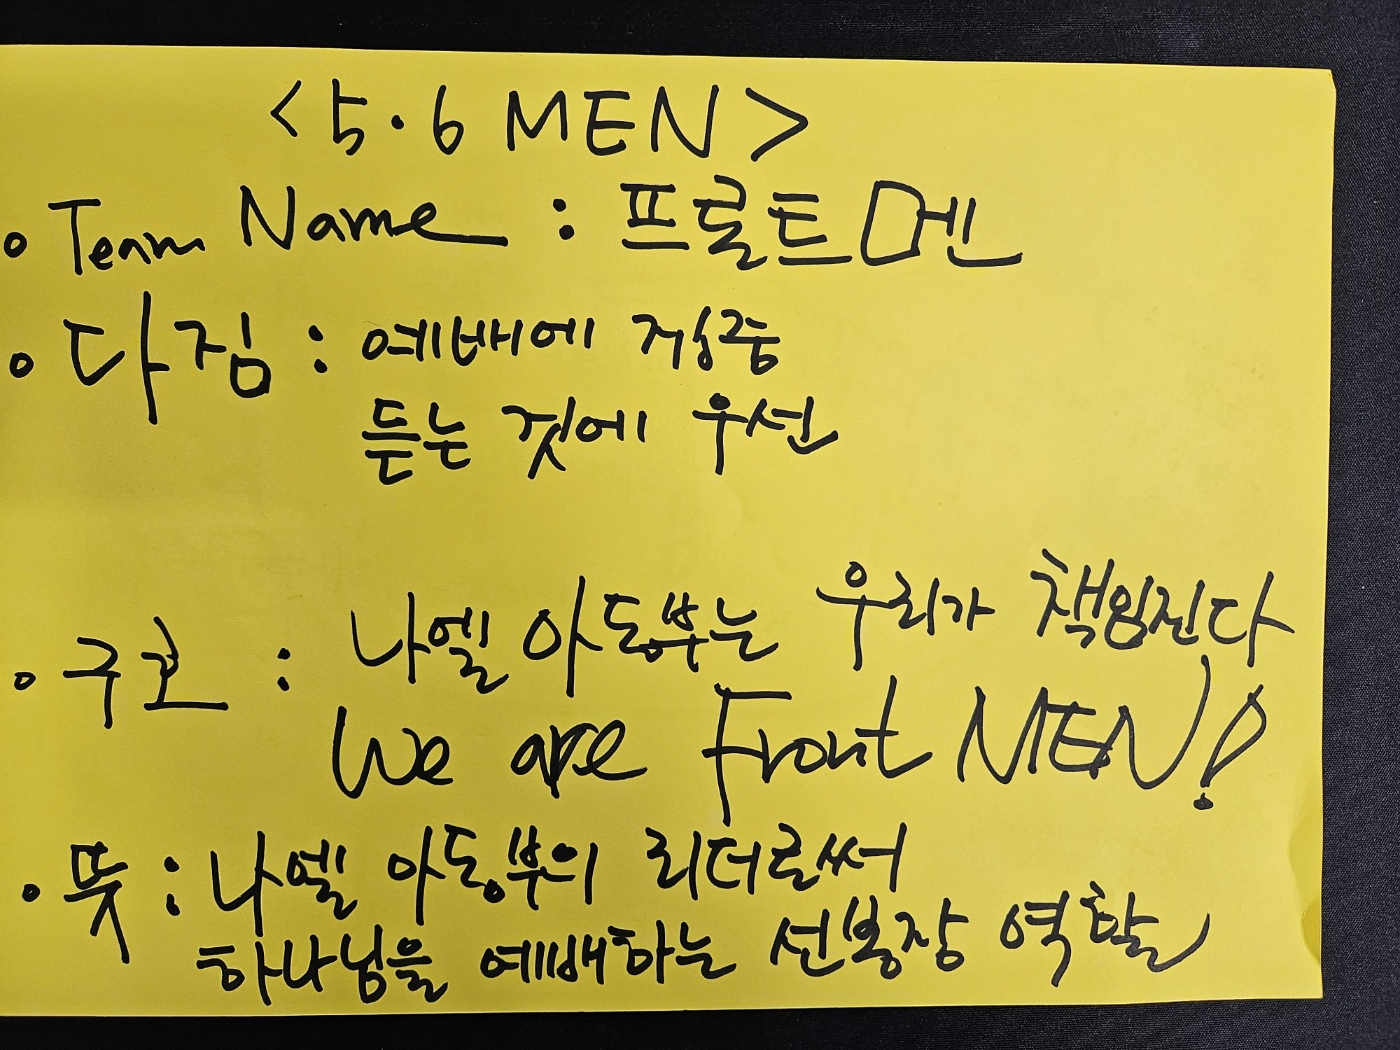 <5·6 MEN>
• Team Name : 프론트맨
• 다짐 : 예배에 집중
듣는 것에 우선
• 구호 : 나엘 아동부는 우리가 책임진다
We are Front MEN!
• 뜻 : 나엘 아동부의 리더로써
하나님을 예배하는 선봉장 역할